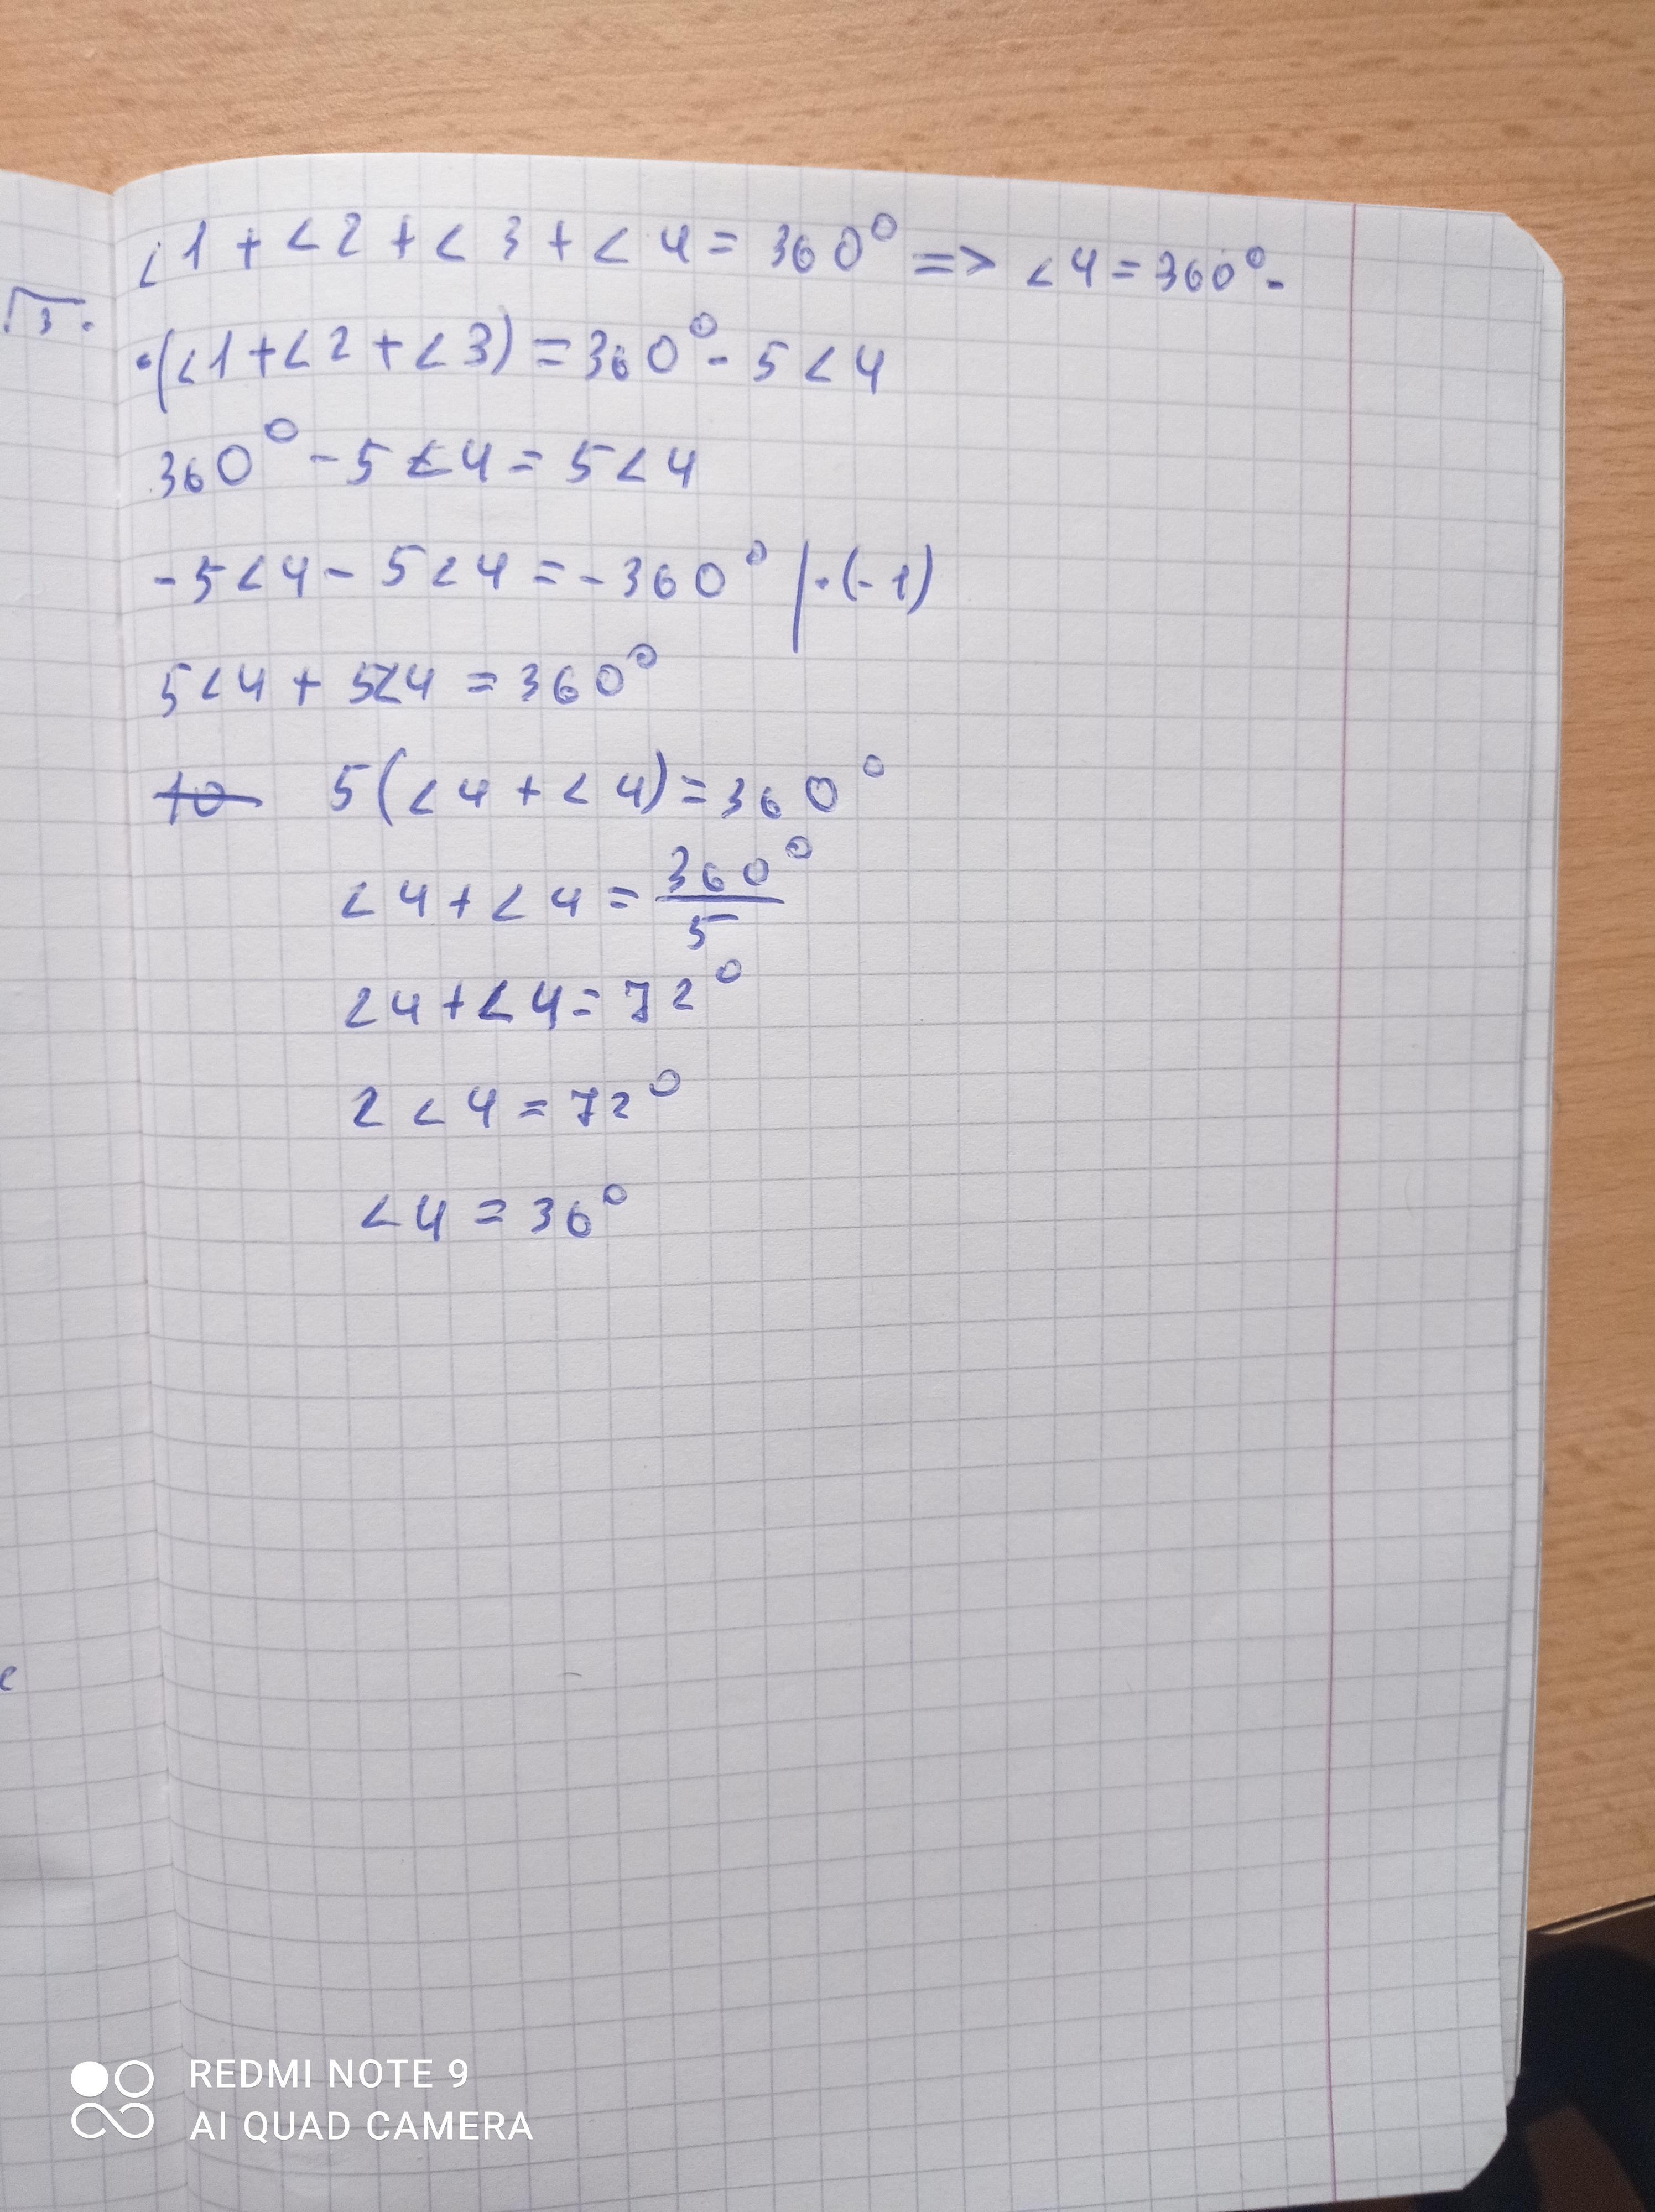 ∠1 + ∠2 + ∠3 + ∠4 = 360° => ∠4 = 360° -
√3.
-(∠1 + ∠2 + ∠3) = 360° - 5∠4
360° - 5∠4 = 5∠4
-5∠4 - 5∠4 = -360° | · (-1)
5∠4 + 5∠4 = 360°
10 5(∠4 + ∠4) = 360°
∠4 + ∠4 = 360°/5
∠4 + ∠4 = 72°
2∠4 = 72°
∠4 = 36°
REDMI NOTE 9
AI QUAD CAMERA